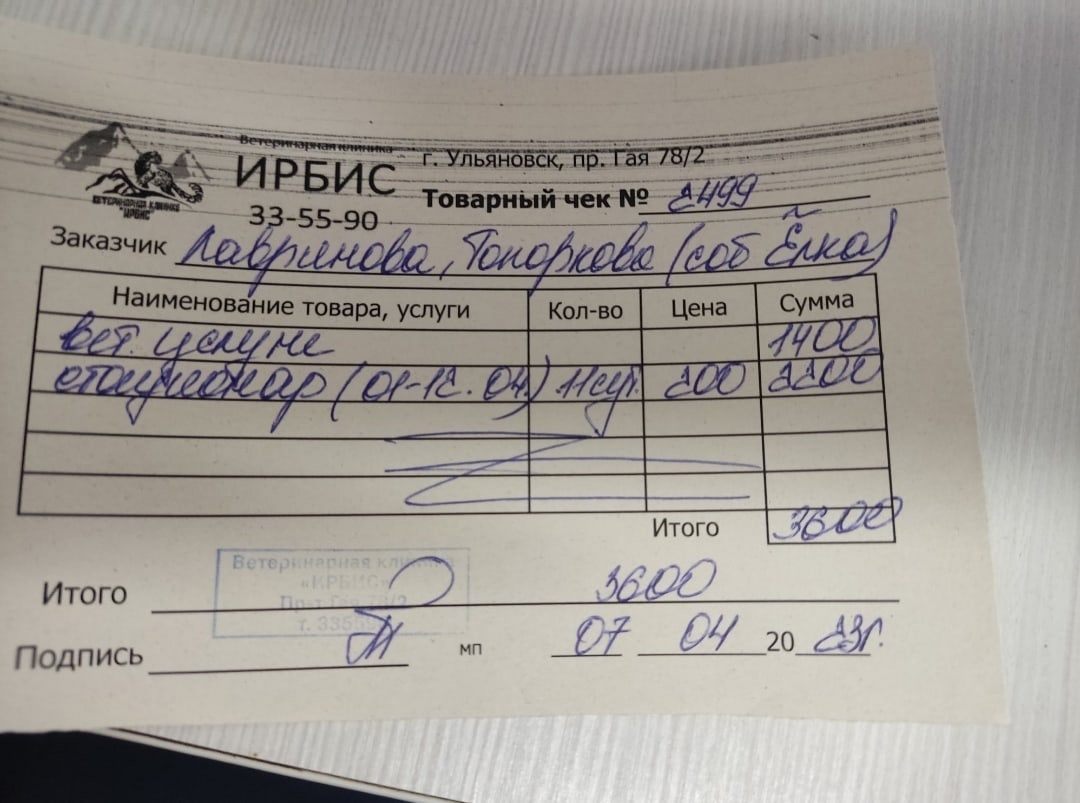 Ветеринарная клиника
ИРБИС
33-55-90
ВЕТЕРИНАРНАЯ КЛИНИКА
"ИРБИС"
г. Ульяновск, пр. Гая 78/2
Товарный чек № 2499
Заказчик Лавринова, Топоркова (соб Ёлка)
Наименование товара, услуги Кол-во Цена Сумма
вет. услуги 1400
стационар (01-12.04) 11сут. 200 2200
Итого 3600
Ветеринарная клиника
«ИРБИС»
Пр-т Гая 78/2
Итого 3600
Подпись мп 07 04 2023г.